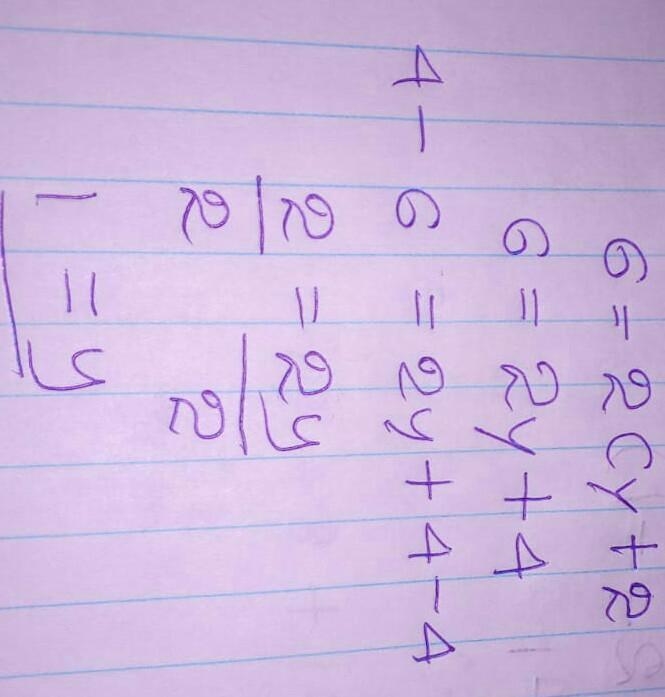 6 = 2(y+2
6 = 2y+4
4-6 = 2y+4-4
2 = 2y
2 2
1 = y